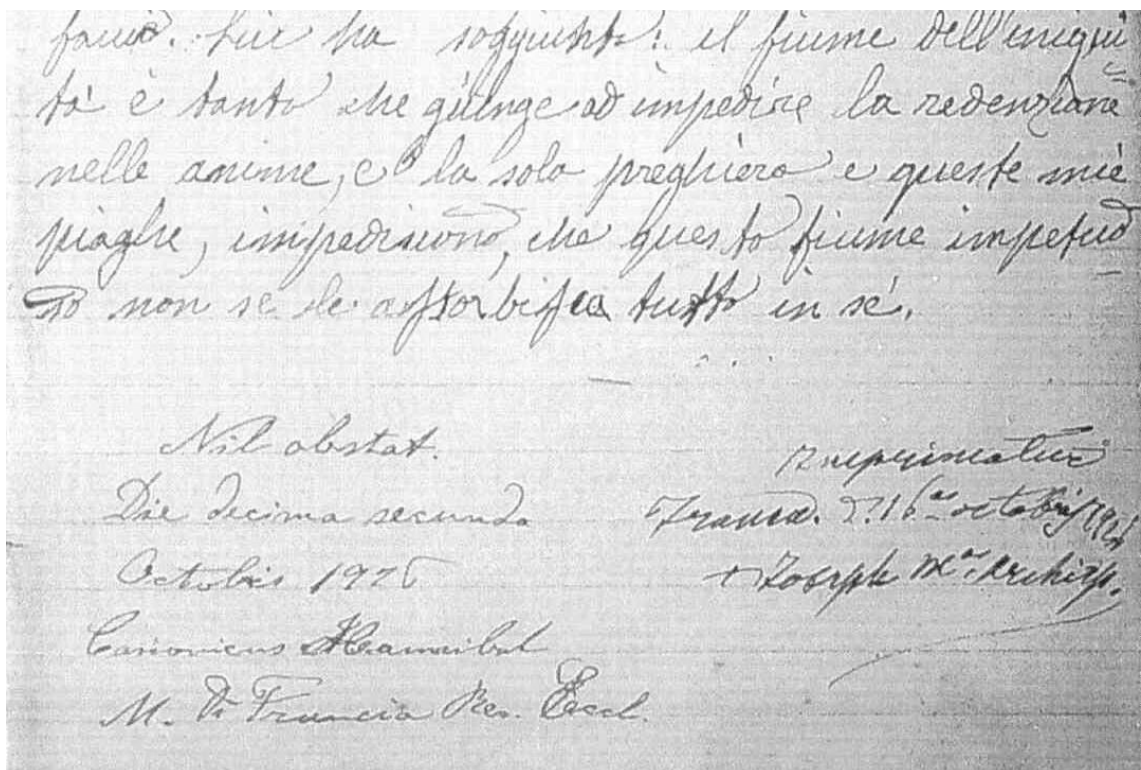 ha soggiunto: il fiume dell'iniqui
tà è tanto che giunge ad impedire la redenzione
nelle anime, e la sola preghiera e queste mie
piaghe, impediscono, che questo fiume impetuo
so non se le assorbisca tutto in sé.
Nil obstat.
Die decima secunda
Octobris 1926
Canonicus Hannibal
M. Di Francia Rev. Eccl.
Imprimatur
D. 16 octobris 1926
+ Joseph Mª Archiep.